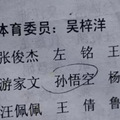 体育委员：吴梓洋
张俊杰 左铭 王
游家文 孙悟空 杨
汪佩佩 王倩 鲁